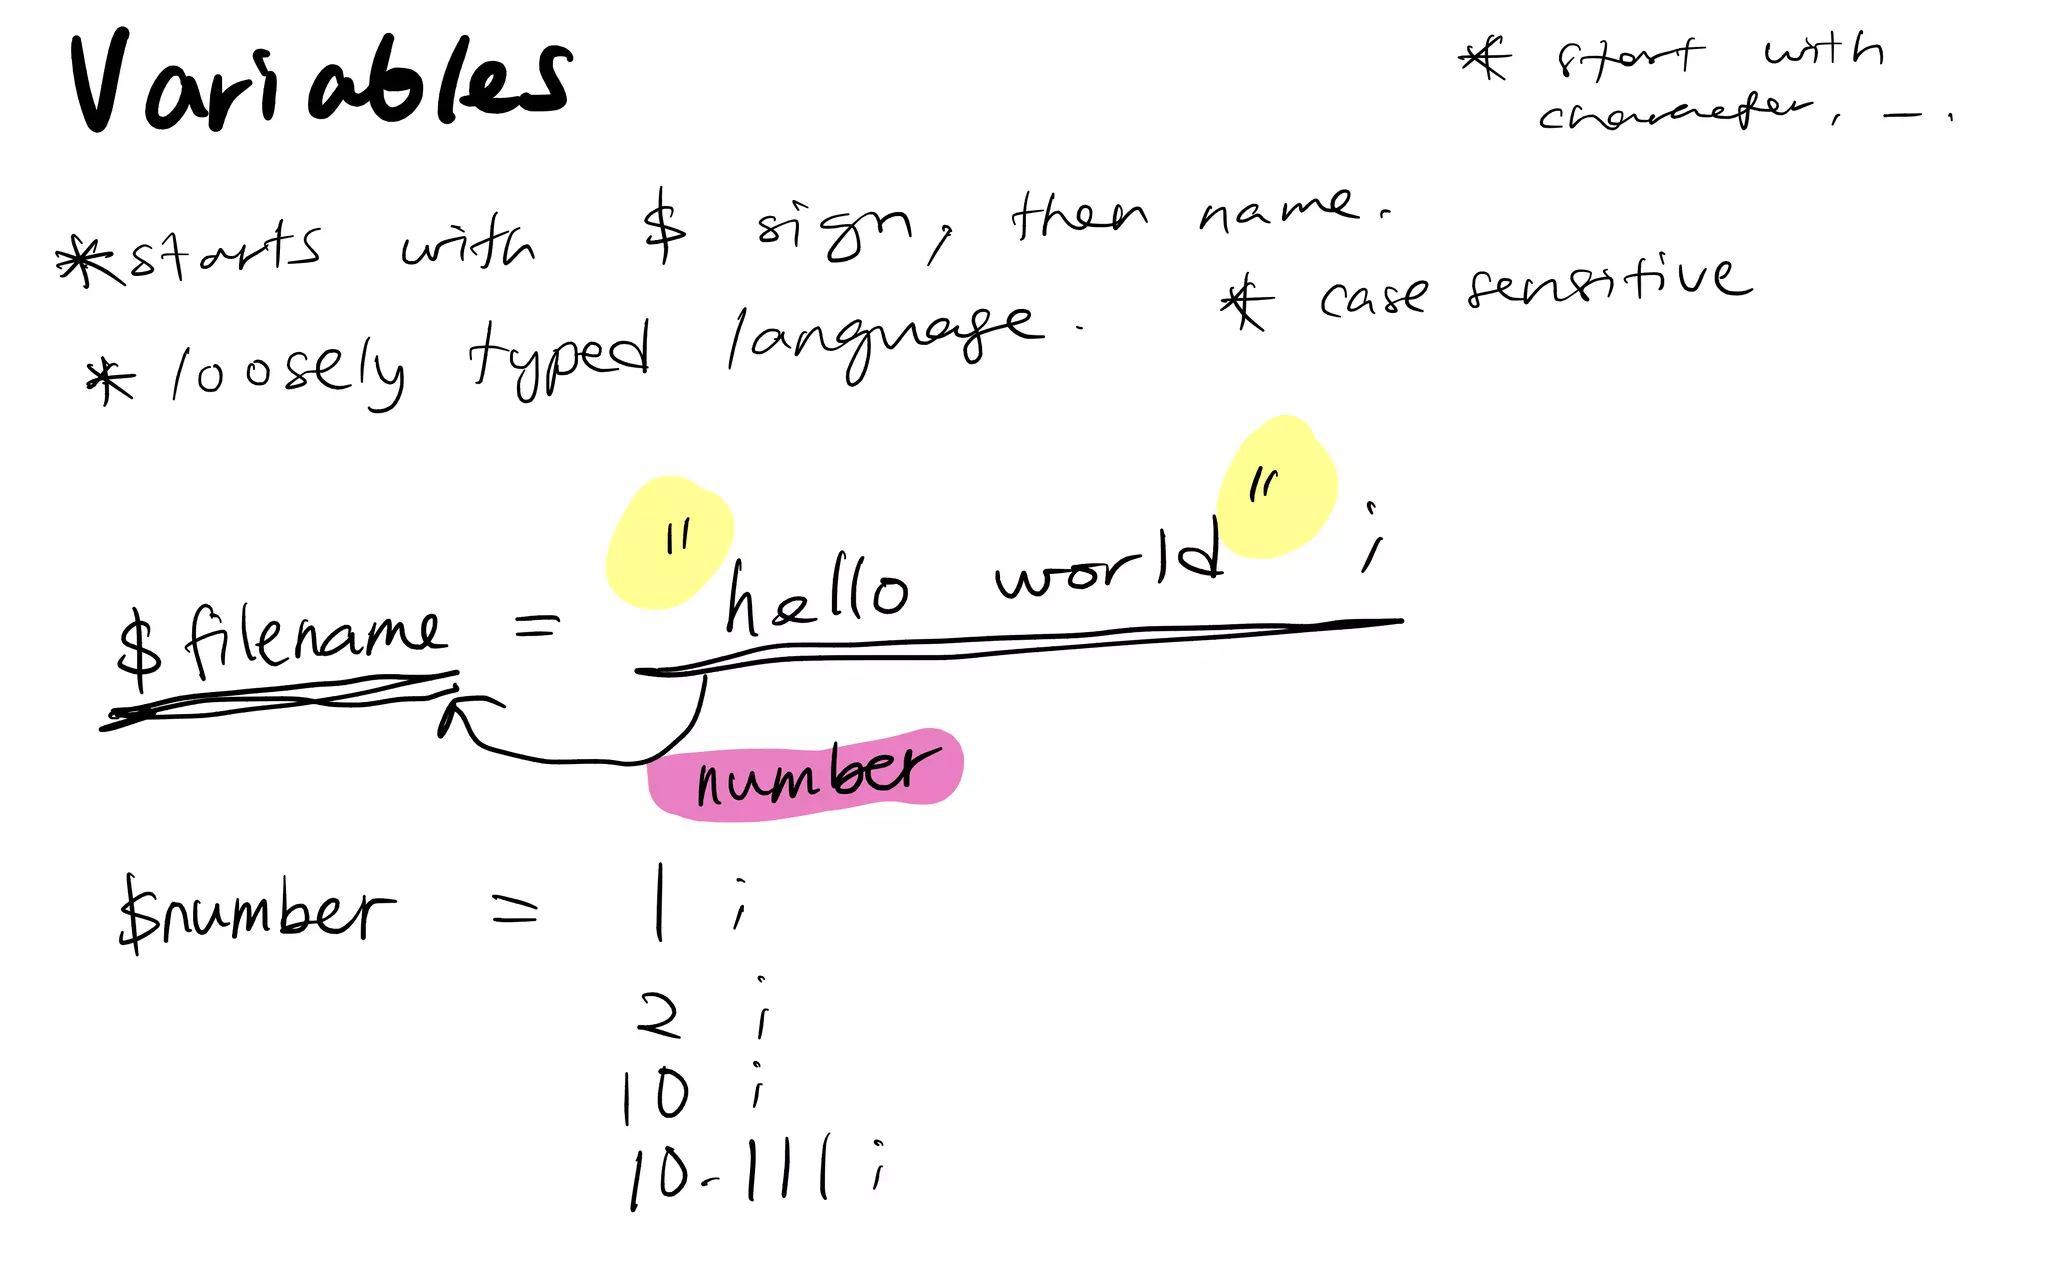 Variables
* start with
character, _.
* starts with $ sign, then name.
* loosely typed language. * case sensitive
$filename = "hello world";
number
$number = 1;
2;
10;
10.111;